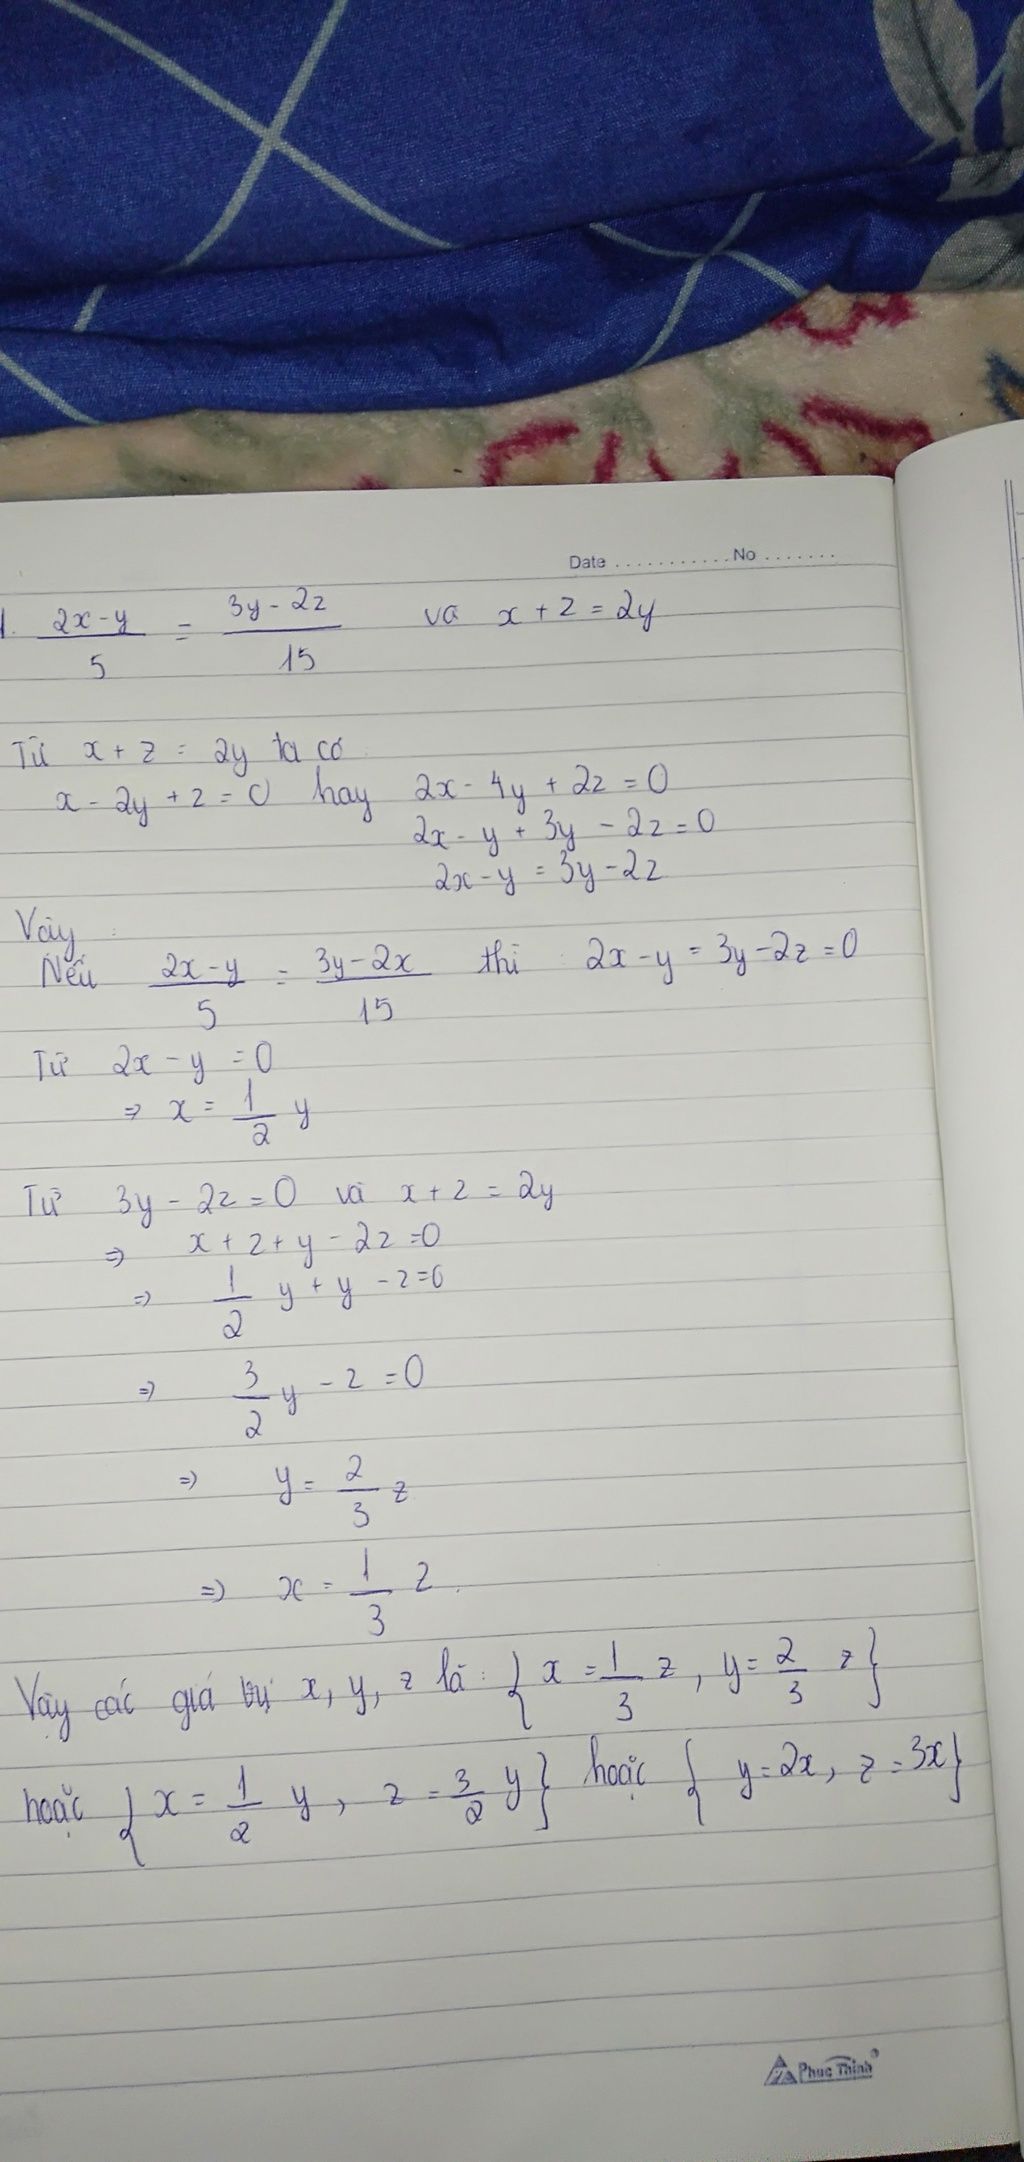 Date ............ No .......
1. \frac{2x-y}{5} = \frac{3y-2z}{15} và x + z = 2y
Từ x + z = 2y ta có
x - 2y + z = 0 hay 2x - 4y + 2z = 0
2x - y + 3y - 2z = 0
2x - y = 3y - 2z
Vậy :
Nếu \frac{2x-y}{5} = \frac{3y-2x}{15} thì : 2x - y = 3y - 2z = 0
Từ 2x - y = 0
⇒ x = \frac{1}{2} y
Từ 3y - 2z = 0 và x + z = 2y
⇒ x + z + y - 2z = 0
⇒ \frac{1}{2} y + y - z = 0
⇒ \frac{3}{2} y - z = 0
⇒ y = \frac{2}{3} z
⇒ x = \frac{1}{3} z.
Vậy các giá trị x, y, z là : { x = \frac{1}{3} z, y = \frac{2}{3} z }
hoặc { x = \frac{1}{2} y, z = \frac{3}{2} y } hoặc { y = 2x, z = 3x }
Phuc Thinh